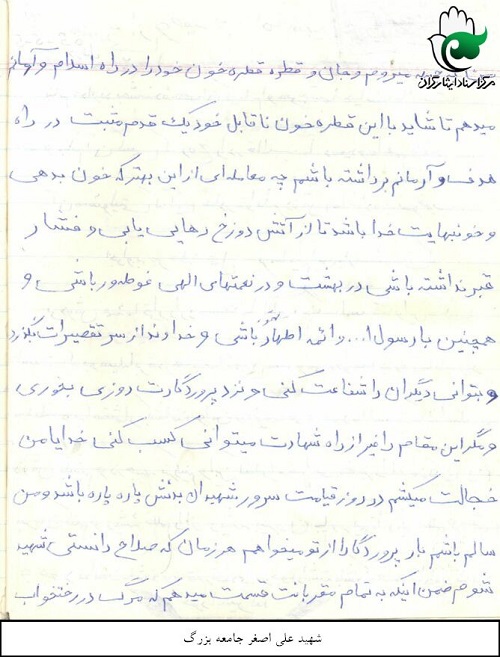 مرکز اسناد ایثارگران
میروم و جان و قطره قطره خون خود را در راه اسلام و آرمانم
میدهم تا شاید با این قطره خون ناقابل خود یک قدم مثبت در راه
هدف و آرمانم برداشته باشم چه معامله‌ای از این بهتر که خون بدهی
و خونبهایت خدا باشد تا از آتش دوزخ رهایی یابی و فشار
قبر نداشته باشی در بهشت و در نعمتهای الهی غوطه‌ور باشی و
همچنین با رسول ا... و ائمه اطهار باشی و خداوند از سر تقصیرات بگذرد
و بتوانی دیگران را شفاعت کنی و نزد پروردگارت روزی بخوری
و مگر این مقام را غیر از راه شهادت میتوانی کسب کنی خدایا من
خجالت میکشم در روز قیامت سرور شهیدان بدنش پاره پاره باشد و من
سالم باشم بار پروردگارا از تو میخواهم هر زمان که صلاح دانستی شهید
شوم ضمن اینکه به تمام مقربانت قسمت میدهم که مرگ در رختخواب
شهید علی اصغر جامعه بزرگ